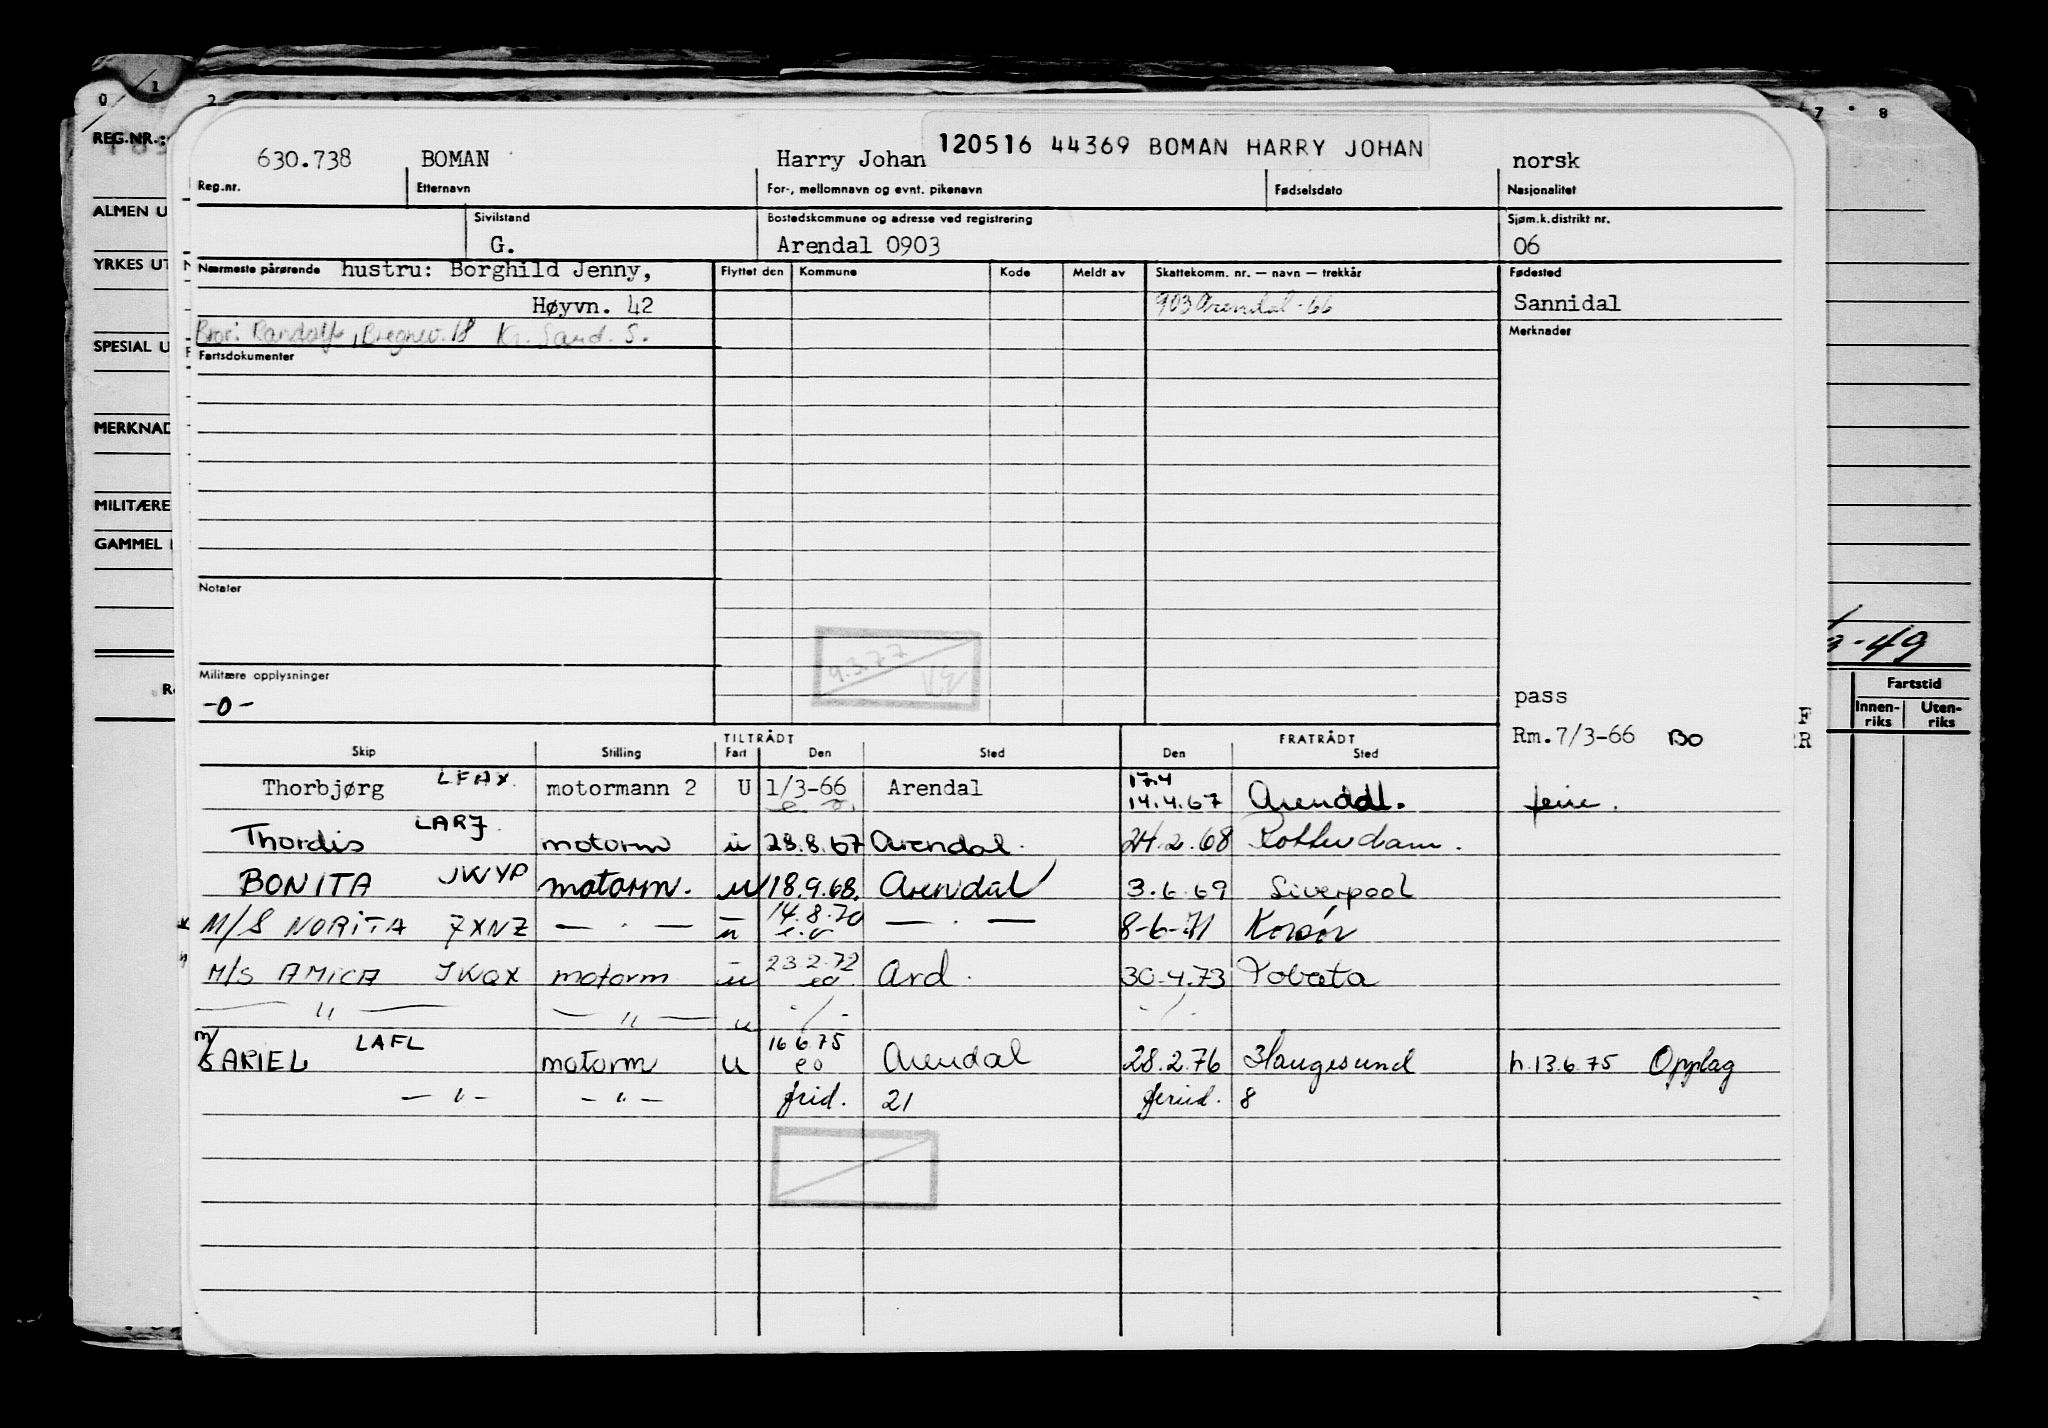 0 1 2 7 8
REG.NR.:
120516 44369 BOMAN HARRY JOHAN
630.738 BOMAN Harry Johan norsk
Reg.nr. Etternavn For-, mellomnavn og evnt. pikenavn Fødselsdato Nasjonalitet
ALMEN U
Sivilstand Bostedskommune og adresse ved registrering Sjøm.k.distrikt nr.
G. Arendal 0903 06
YRKES UT
Nærmeste pårørende hustru: Borghild Jenny, Flyttet den Kommune Kode Meldt av Skattekomm. nr. — navn — trekkår Fødested
Høyvn. 42 903 Arendal - 66 Sannidal
Bror: Randolf, Bregnev. 18 Kr. Sand. S. Merknader
SPESIAL U
Fartsdokumenter
MERKNAD
MILITÆRE
GAMMEL
Notater
9.3.77
3-49
Militære opplysninger
-0-
pass
Fartstid
Innen-riks Uten-riks
Rm.7/3-66 BO
TILTRÅDT FRATRÅDT
Skip Stilling Fart Den Sted Den Sted
Thorbjørg LFAX motormann 2 U 1/3-66 Arendal 17.4 14.4.67 Arendal. ferie.
Thordis LARJ motorm u 28.8.67 Arendal. 24.2.68 Rotterdam.
BONITA JWYP motorm. u 18.9.68. Arendal 3.6.69 Liverpool
M/S NORITA 7XNZ — . — u 14.8.70 e.o — . — 8-6-71 Korsør
M/S AMICA JWQX motorm u 23.2.72 eo Ard. 30.4.73 Tobata
— " — — " — u -/- -/-
m/s ARIEL LAFL motorm U 16.6.75 eo Arendal 28.2.76 Haugesund h.13.6.75 Opplag
— " — — " — frid. 21 feried. 8